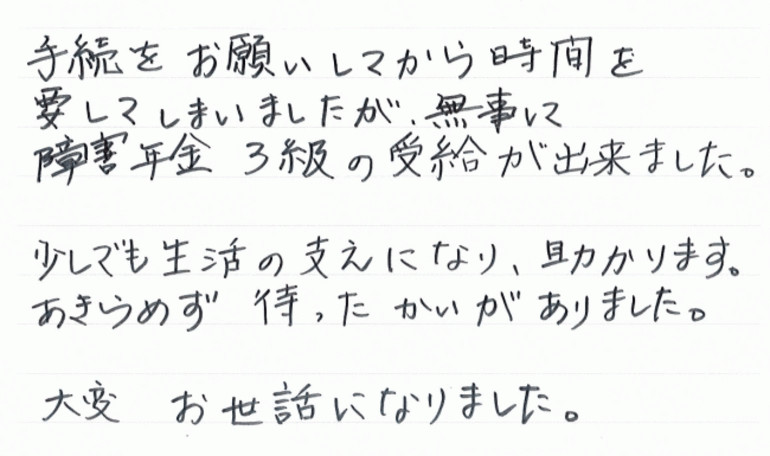 手続をお願いしてから時間を
要してしまいましたが、無事に
障害年金 3級の受給が出来ました。
少しでも生活の支えになり、助かります。
あきらめず 待った かいがありました。
大変 お世話になりました。